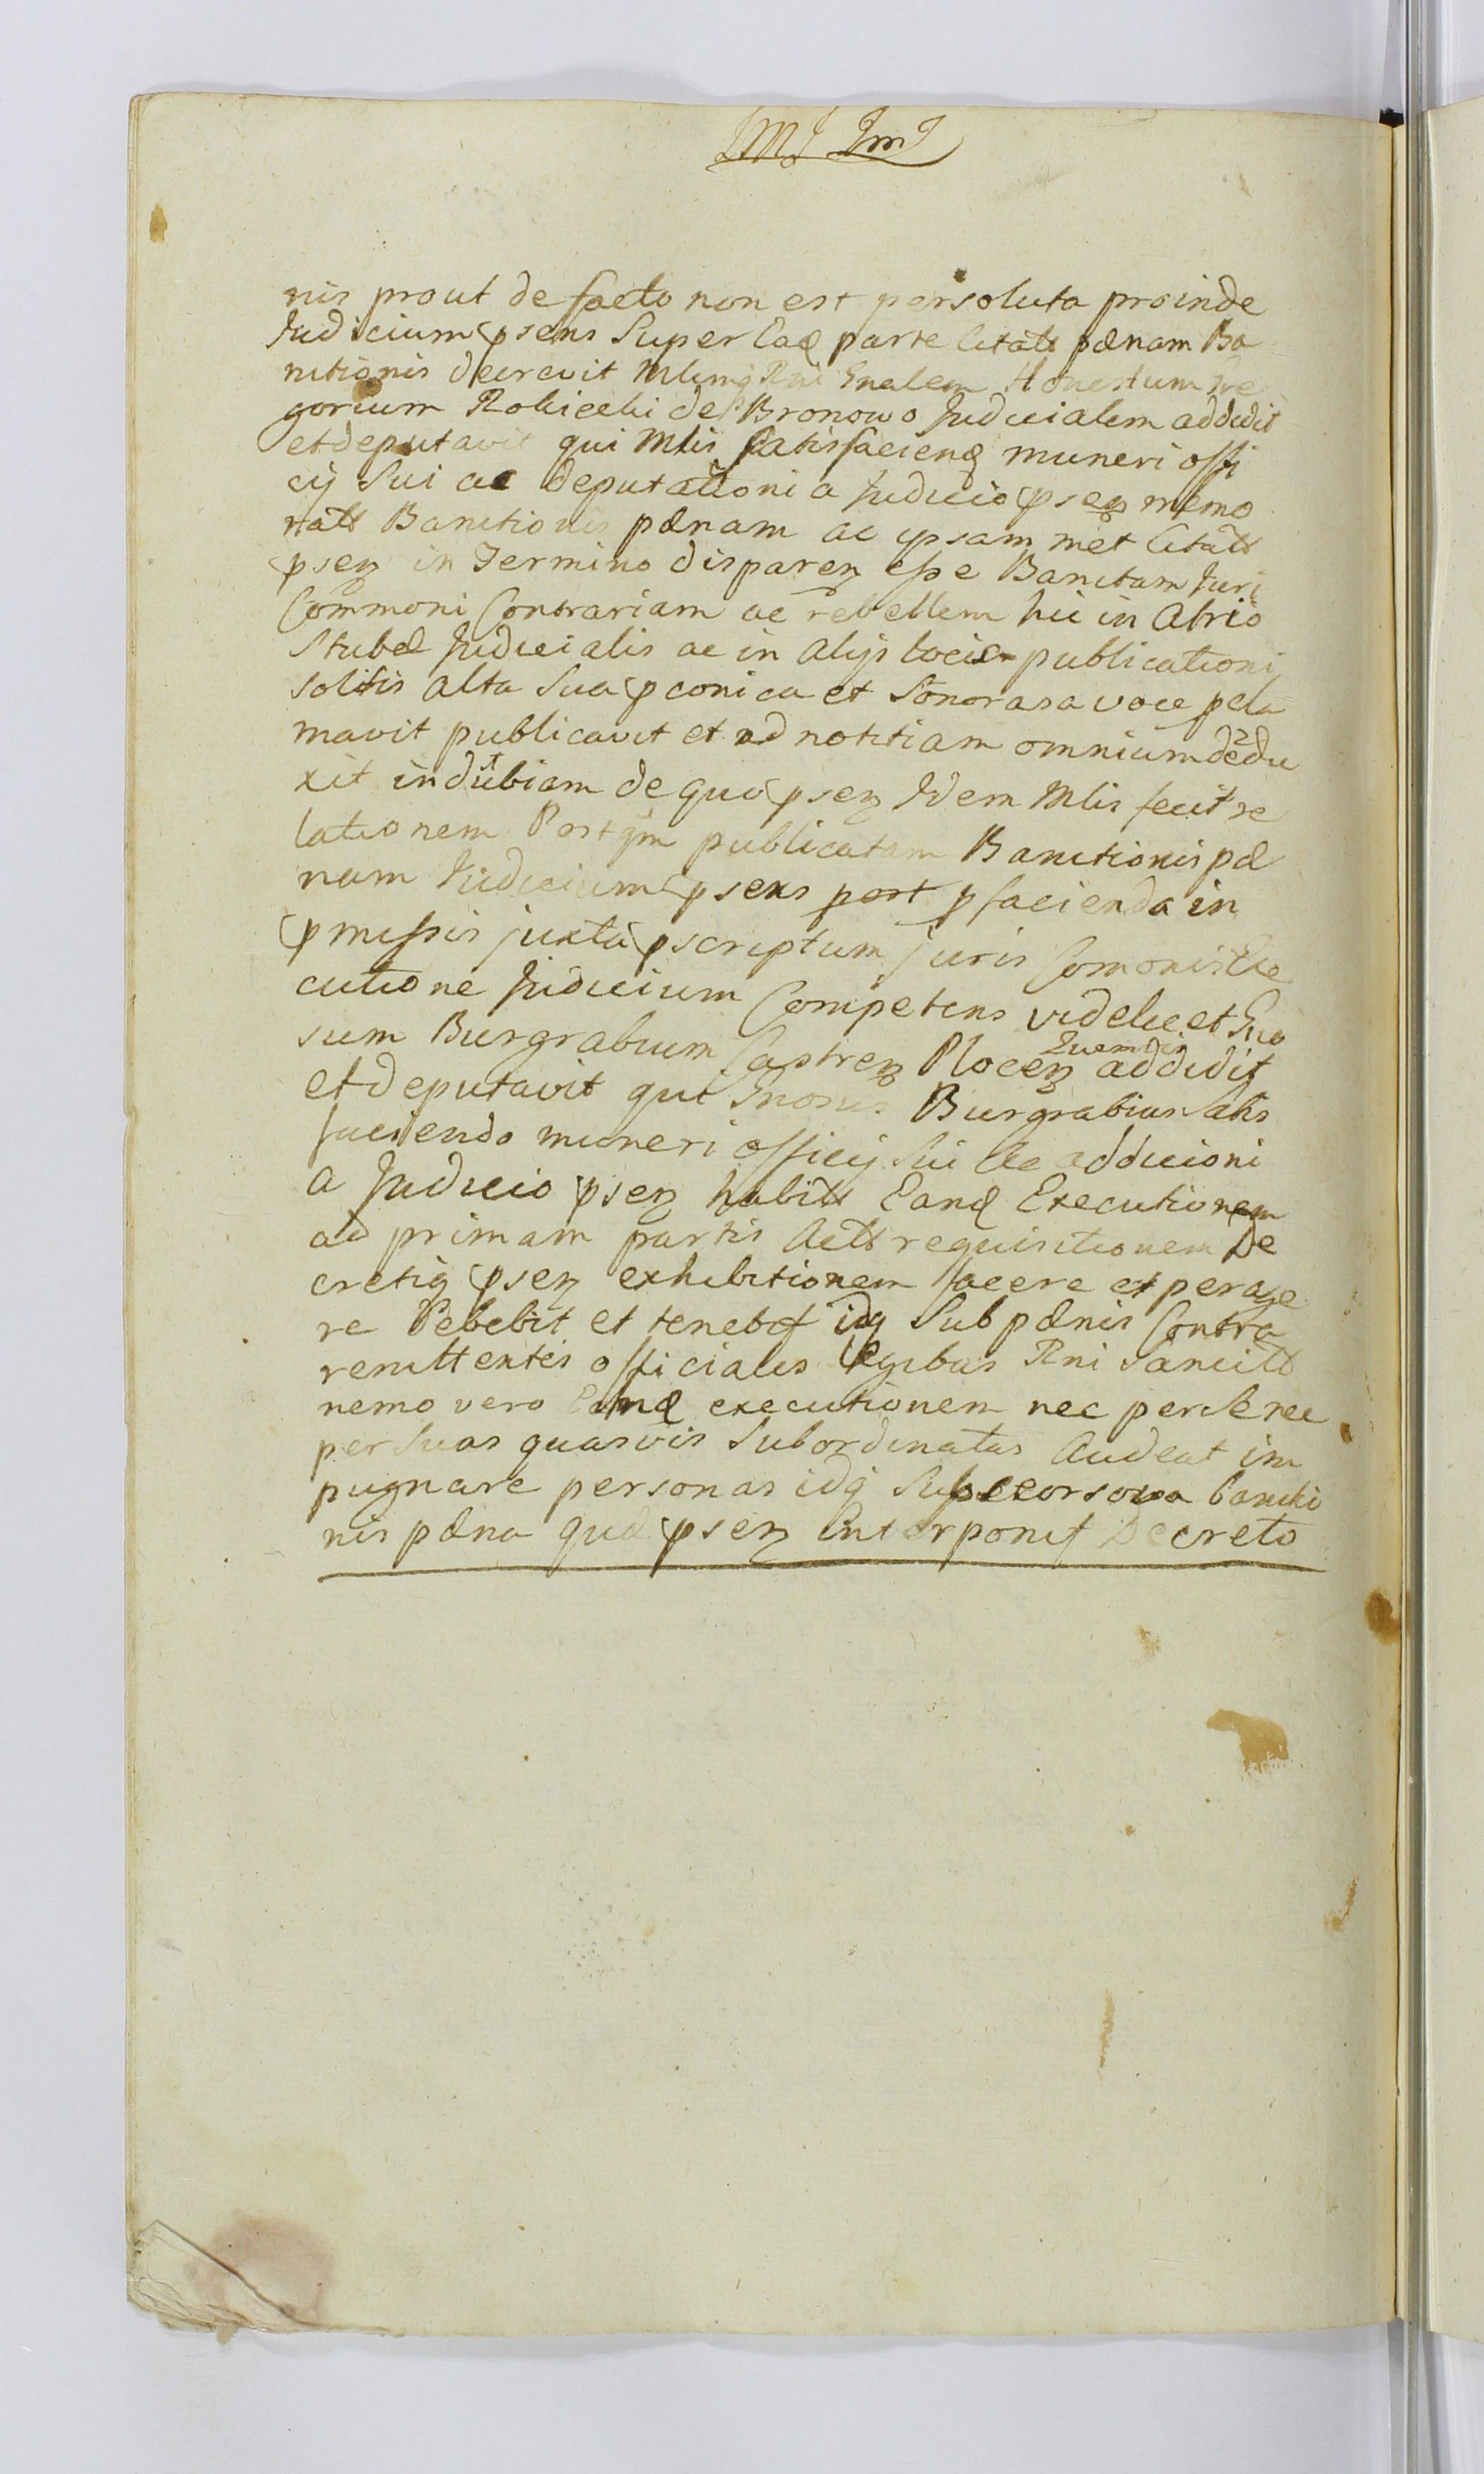 nis prout de facto non est persoluta proinde
Judicium psens Super Ead parte Citatt pœnam Ba
nitionis decrevit Mlemq Rni Gnalem Honestum Gre
gorium Rokicchi de Bronowo Judicialem addidit
et deputavit qui Mlis satisfaciend muneri offi
cij Sui ac deputationi a Judicio psen memo
ratt Banitionis pœnam ac ipsam met Citatt
psen in Termino disparen esse Banitam Juri
Commoni Contrariam ac rebellem hic in Atrio
Stubæ Judicialis ac in alijs locis publicationi
solitis alta Sua pconica et Sonorosa voce pcla
mavit publicavit et ad notitiam omnium dedu
xit indubiam de quo psen Idem Mlis fecit re
lationem Postqm publicatam Banitionis pœ
nam Judicium psens post p facienda in
pmissis juxta pscriptum juris Comonis Exe
cutione Judicium Competens videlicet Gno
sum Burgrabium Castren Plocen addidit
et deputavit qui Gnosus Burgrabius satis
faciendo muneri officij Sui ac addicioni
a Judicio psen habitt Eand Executionem
ad primam partis Actt requisitionem De
cretiq psen exhibitionem facere et perage
re Debebit et tenebit idq Sub pœnis Contra
remittentes officiales legibus Rni Sancitt
nemo vero Eand executionem nec per se nec
per Suas quasvis Subordinatas Audeat im
pugnare personas idq Sub banitio
nis pœna quæ psen Interponit Decreto